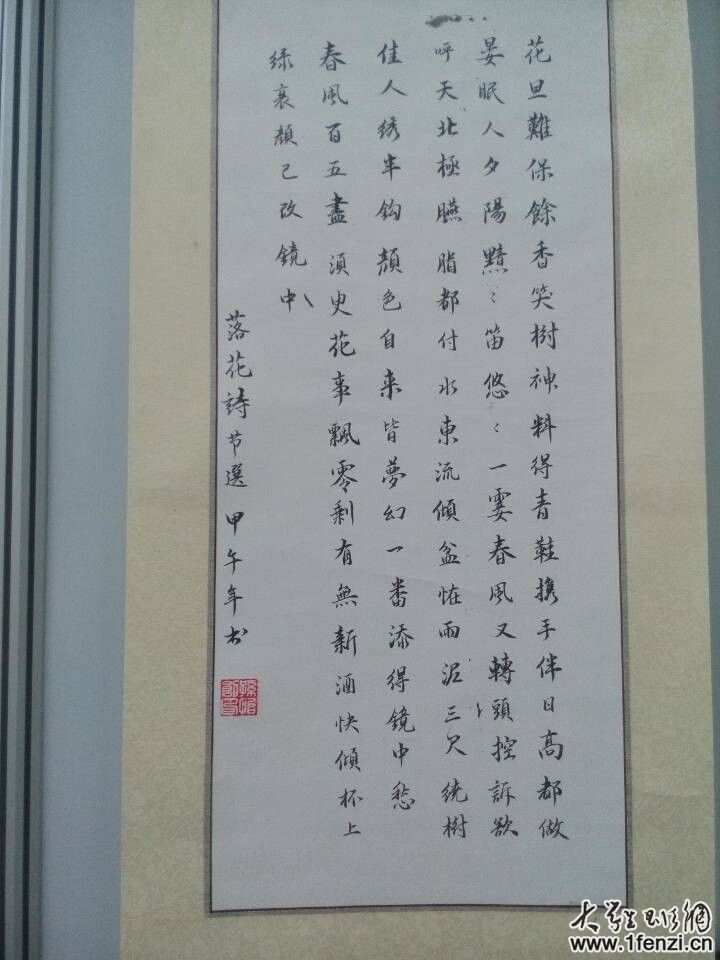 花旦難保餘香笑樹神料得青鞋携手伴日高都做
晏眠人夕陽黯〻笛悠〻一霎春風又轉頭控訴欲
呼天北極臙脂都付水東流傾盆怪雨泥三尺繞樹
佳人绣半鈎顔色自来皆夢幻一番添得鏡中愁
春風百五盡須臾花事飄零剩有無新酒快傾杯上
绿衰顔已改鏡中
落花詩节選甲午年书
大中网
www.1fenzi.cn